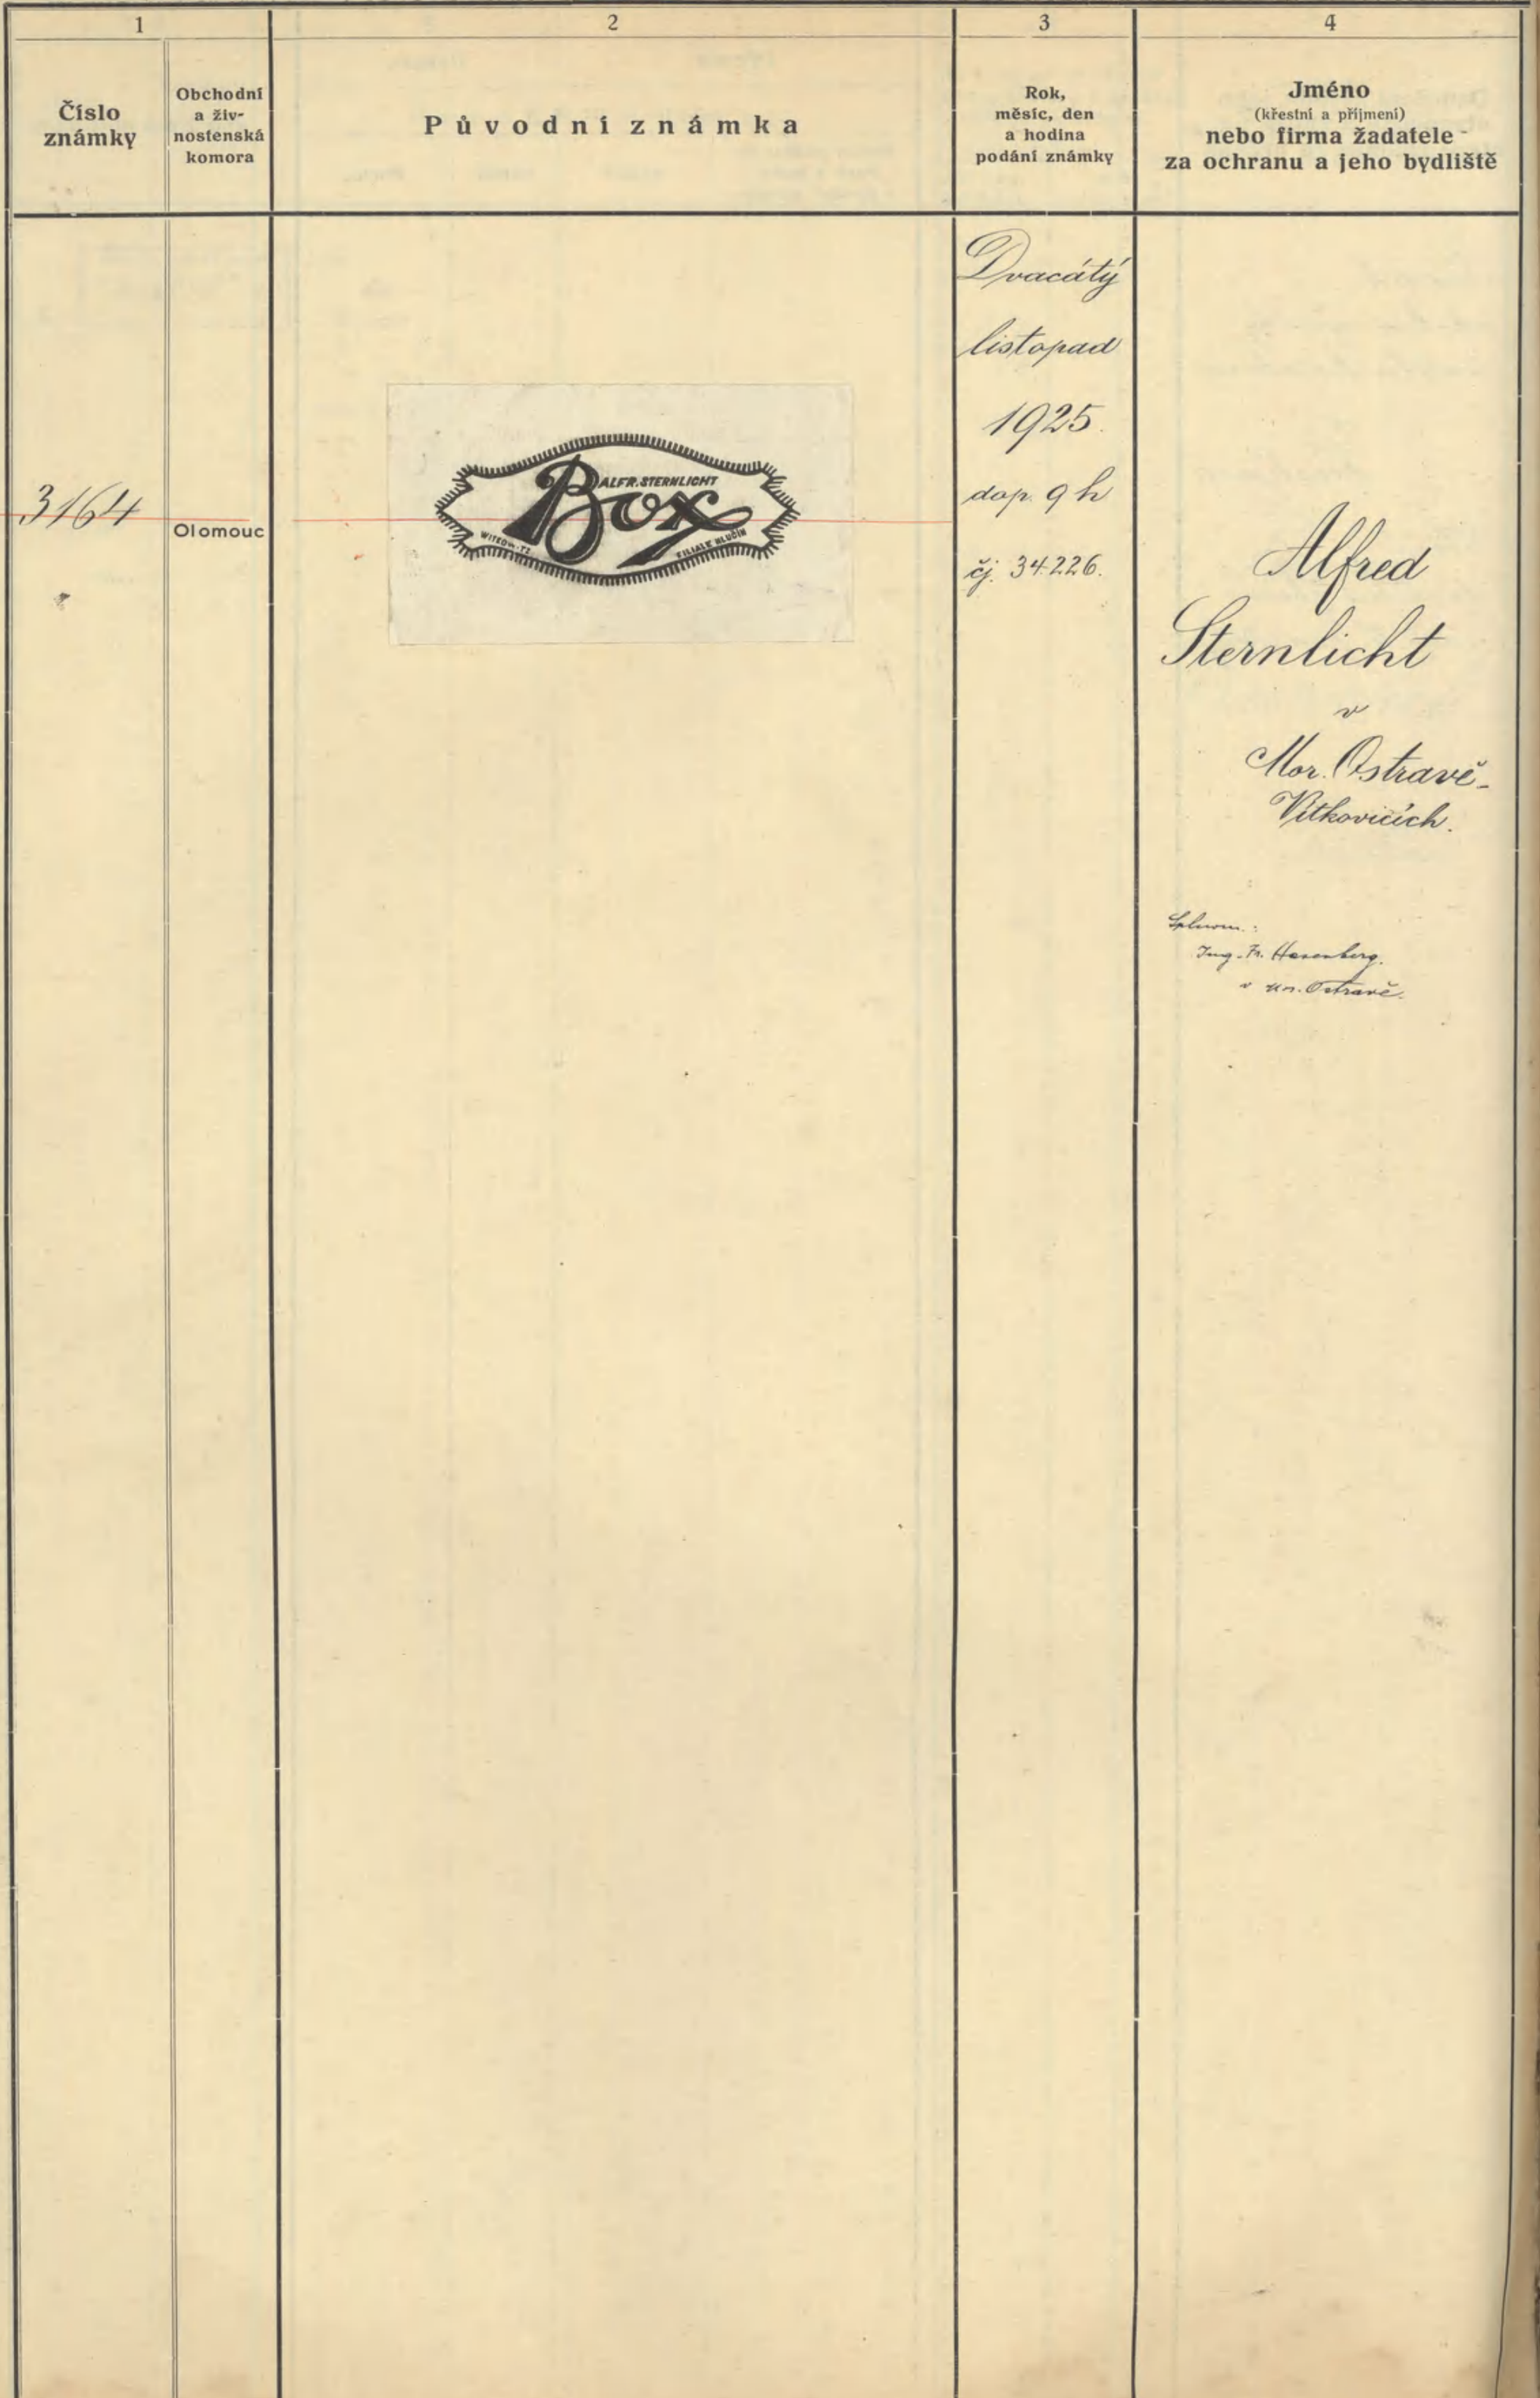 1
2
3
4
Číslo
známky
Obchodní
a živ-
nostenská
komora
Původní známka
Rok,
měsíc, den
a hodina
podání známky
Jméno
(křestní a příjmení)
nebo firma žadatele
za ochranu a jeho bydliště
3164
Olomouc
ALFR. STERNLICHT
Box
WITKOWITZ
FILIALE HLUČÍN
Dvacátý
listopad
1925.
dop. 9 h
čj. 34.226.
Alfred
Sternlicht
v
Mor. Ostravě-
Vítkovicích.
Splnom.:
Ing. Fr. Hasenberg.
v Mor. Ostravě.